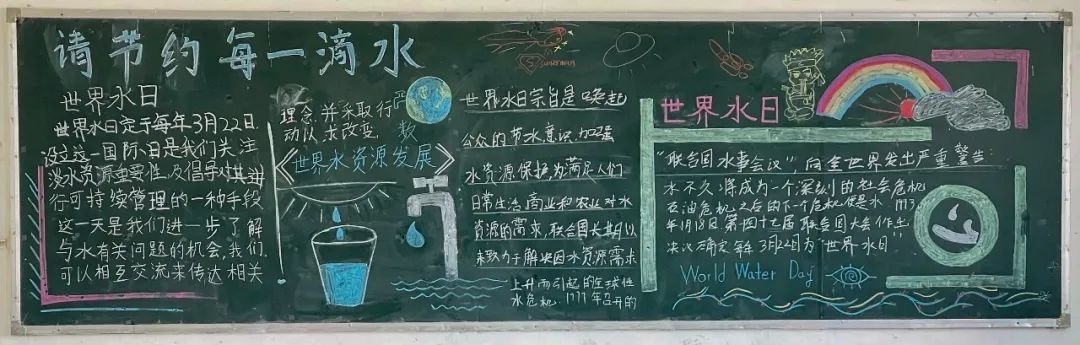 请节约每一滴水
世界水日
世界水日定于每年3月22日.
设立这一国际日是我们关注
淡水资源重要性,及倡导对其进
行可持续管理的一种手段
这一天是我们进一步了解
与水有关问题的机会,我们
可以相互交流来传达相关
理念,并采取行
动以求改变,
《世界水资源发展》
世界水日宗旨是唤起
公众的节水意识,加强
水资源保护.为满足人们
日常生活,商业和农业对水
资源的需求,联合国长期以
来致力于解决因水资源需求
上升而引起的全球性
水危机,1977年召开的
世界水日
"联合国水事会议",向全世界发出严重警告:
水不久将成为一个深刻的社会危机
石油危机之后的下一个危机便是水
年1月18日,第四十七届联合国大会作出
决议确定每年3月22日为"世界水日"
World Water Day